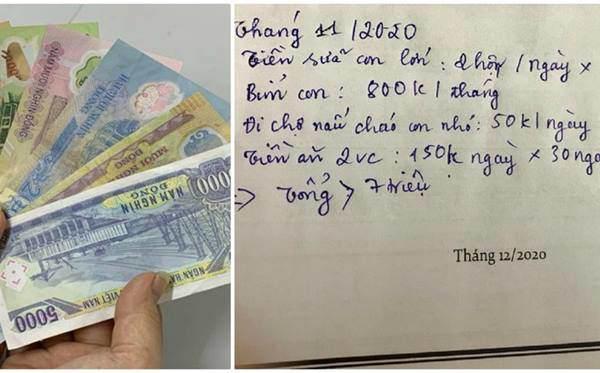 HAI MƯƠI NGHÌN ĐỒNG
MƯỜI NGHÌN
ĐỒNG
000
NĂM NGHÌN
ĐỒNG
NGÂN HÀ
VIỆT NAM
5000
Tháng 11/2020
Tiền sữa con lớn : 2 hộp / ngày ×
Bỉm con : 800k / tháng
Đi chợ nấu cháo con nhỏ : 50k / ngày
Tiền ăn 2vc : 150k ngày × 30 ngà
=> Tổng > 7 triệu
Tháng 12/2020